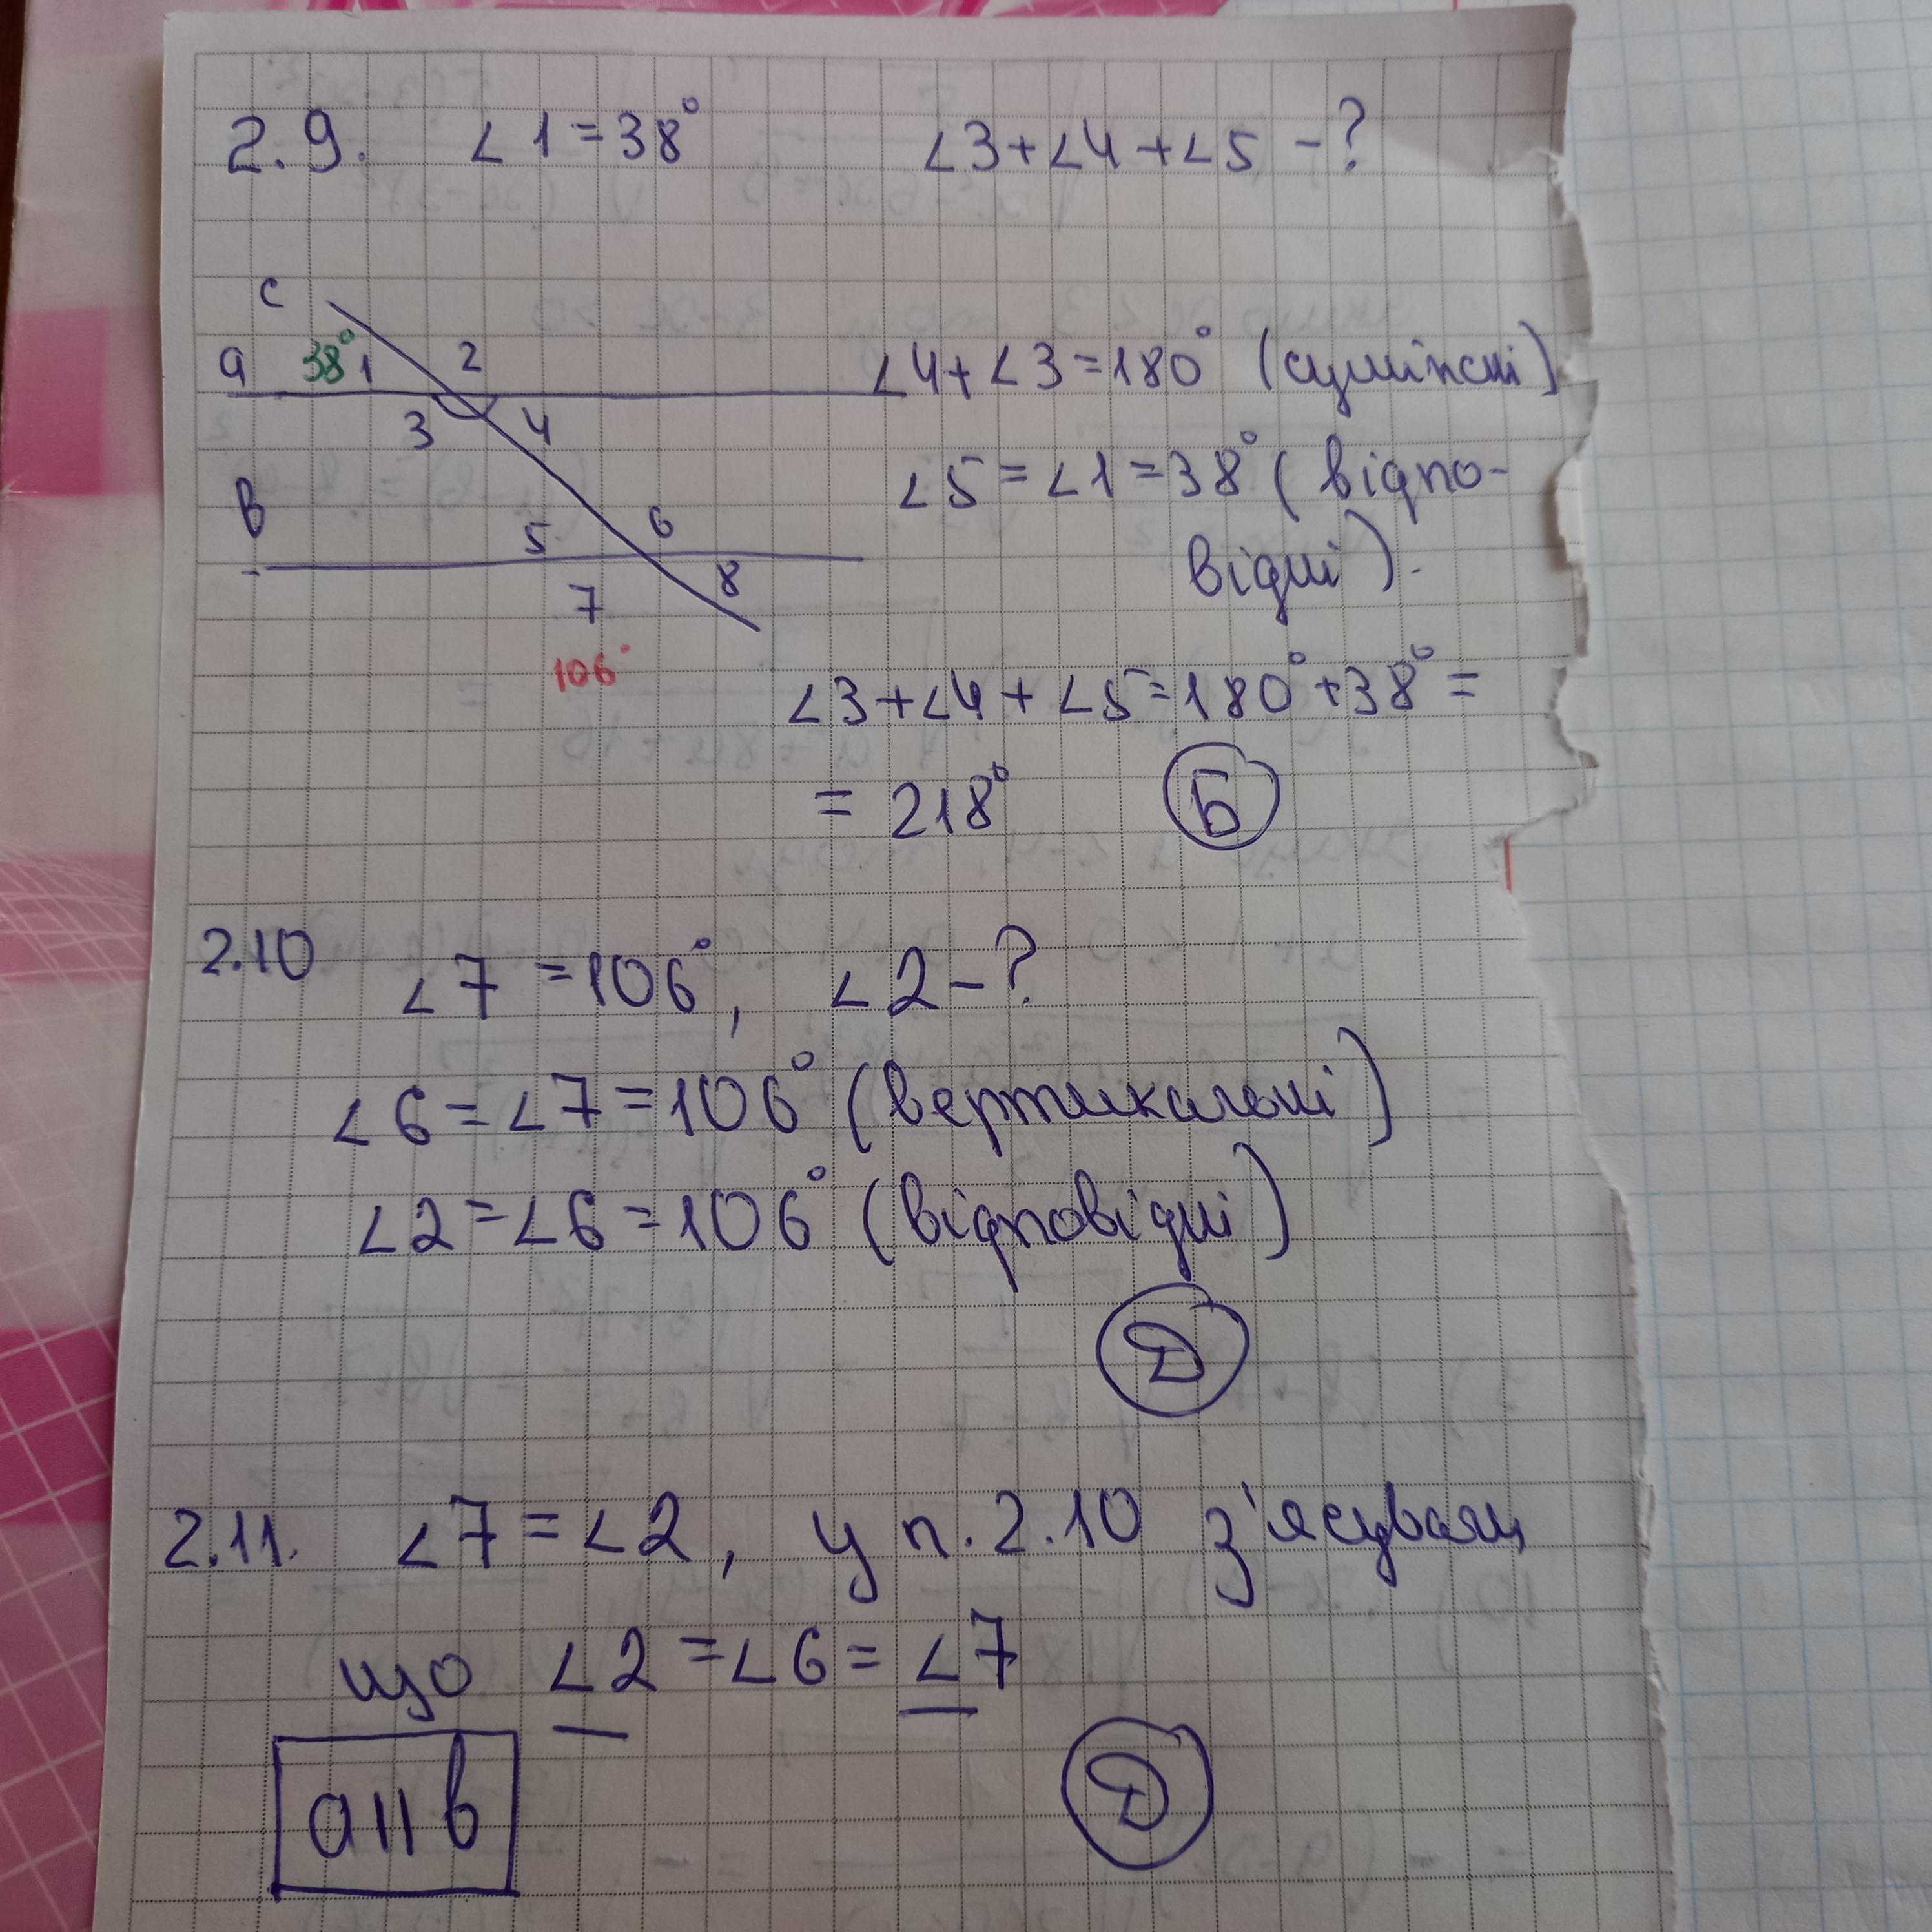 2.9. ∠1=38° ∠3+∠4+∠5 -?
c
a 38° 1 2
3 4
∠4+∠3=180° (суміжні)
∠5=∠1=38° (відпо-
відні).
в
5 6
7 8
106°
∠3+∠4+∠5=180°+38°=
= 218° Б
2.10 ∠7=106°, ∠2-?
∠6=∠7=106° (вертикальні)
∠2=∠6=106° (відповідні)
Д
2.11. ∠7=∠2, у п. 2.10 з'ясували,
що ∠2=∠6=∠7
a||в Д